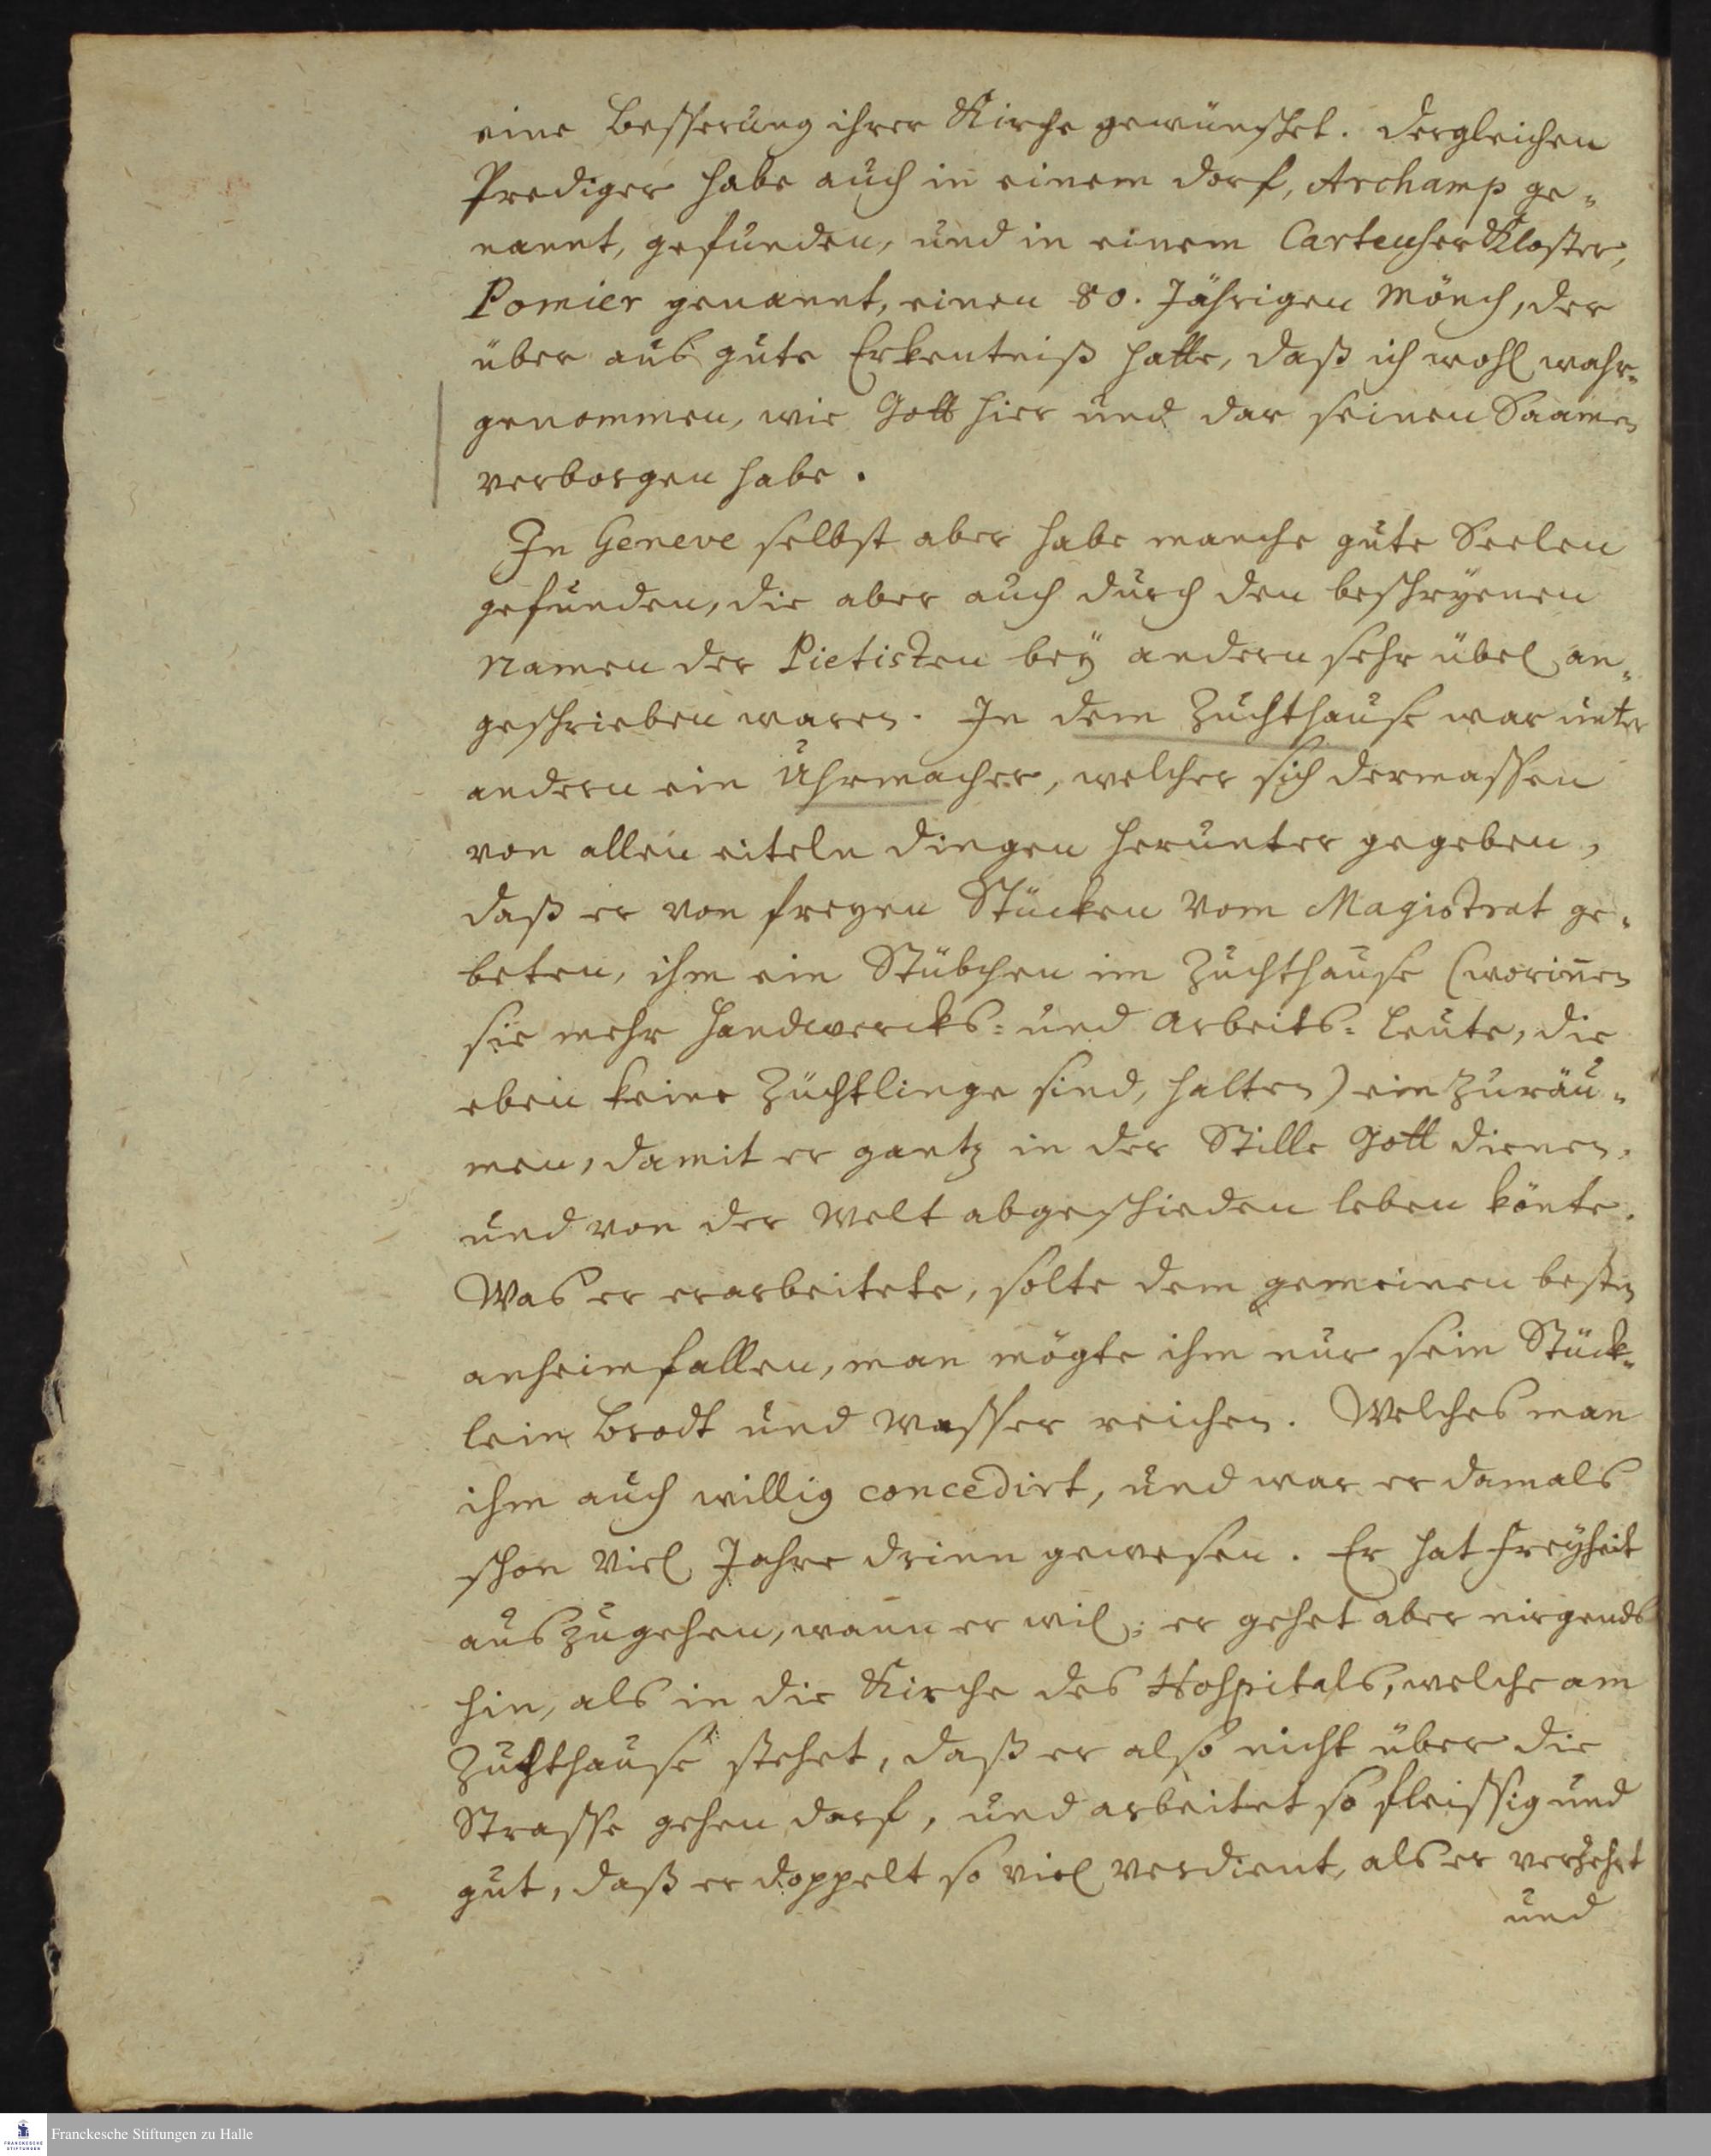 eine Besserung ihrer Kirche gewünschet. Dergleichen
Prediger habe auch in einem Dorf, Archamp ge-
nannt, gefunden, und in einem Carteuser Kloster,
Pomier genannt, einen 80. Jährigen Mönch, der
über aus gute Erkentniß hatte, daß ich wohl wahr-
genommen, wie Gott hier und dar seinen Saamen
verborgen habe.
In Geneve selbst aber habe manche gute Seelen
gefunden, die aber auch durch den beschryenen
Namen der Pietisten bey andern sehr übel an-
geschrieben waren. In dem Zuchthause war unter
andern ein Uhrmacher, welcher sich dermassen
von allen eiteln Dingen herunter gegeben,
daß er von freyen Stücken vom Magistrat ge-
beten, ihm ein Stübchen im Zuchthause (worinnen
sie mehr Handwercks- und Arbeits-Leute, die
eben keine Züchtlinge sind, halten) einzuräu-
men, damit er gantz in der Stille Gott dienen,
und von der Welt abgeschieden leben könte.
Was er erarbeitete, solte dem gemeinen besten
anheimfallen, man mögte ihm nur sein Stück-
lein Brodt und Wasser reichen. Welches man
ihm auch willig concedirt, und war er damals
schon viel Jahre drinn gewesen. Er hat Freyheit
auszugehen, wann er wil; er gehet aber nirgends
hin, als in die Kirche des Hospitals, welche am
Zuchthause stehet, daß er also nicht über die
Strasse gehen darf, und arbeitet so fleissig und
gut, daß er doppelt so viel verdient, als er verzehrt
und
Franckesche Stiftungen zu Halle